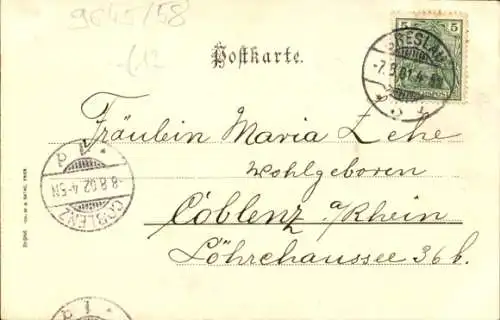 9645/58
Postkarte.
5 5
BRESLAU
-7.8.02.4-5N
Fräulein Maria Zehe
Wohlgeboren
Coblenz a/Rhein
Löhrchaussee 36 b.
COBLENZ
-8.8.02.4-5N